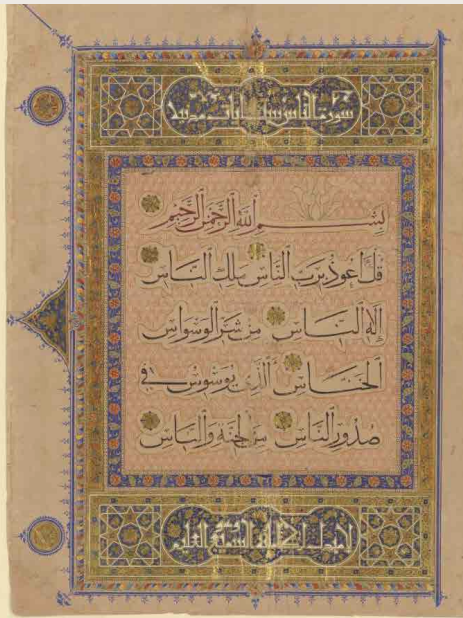 سورة الناس ست ايات مدنية
بِسْمِ اللَّهِ الرَّحْمَٰنِ الرَّحِيمِ
قُلْ أَعُوذُ بِرَبِّ النَّاسِ مَلِكِ النَّاسِ
إِلَٰهِ النَّاسِ مِن شَرِّ الْوَسْوَاسِ
الْخَنَّاسِ الَّذِي يُوَسْوِسُ فِي
صُدُورِ النَّاسِ مِنَ الْجِنَّةِ وَالنَّاسِ
لا مبدل لكلماته وهو السميع العليم